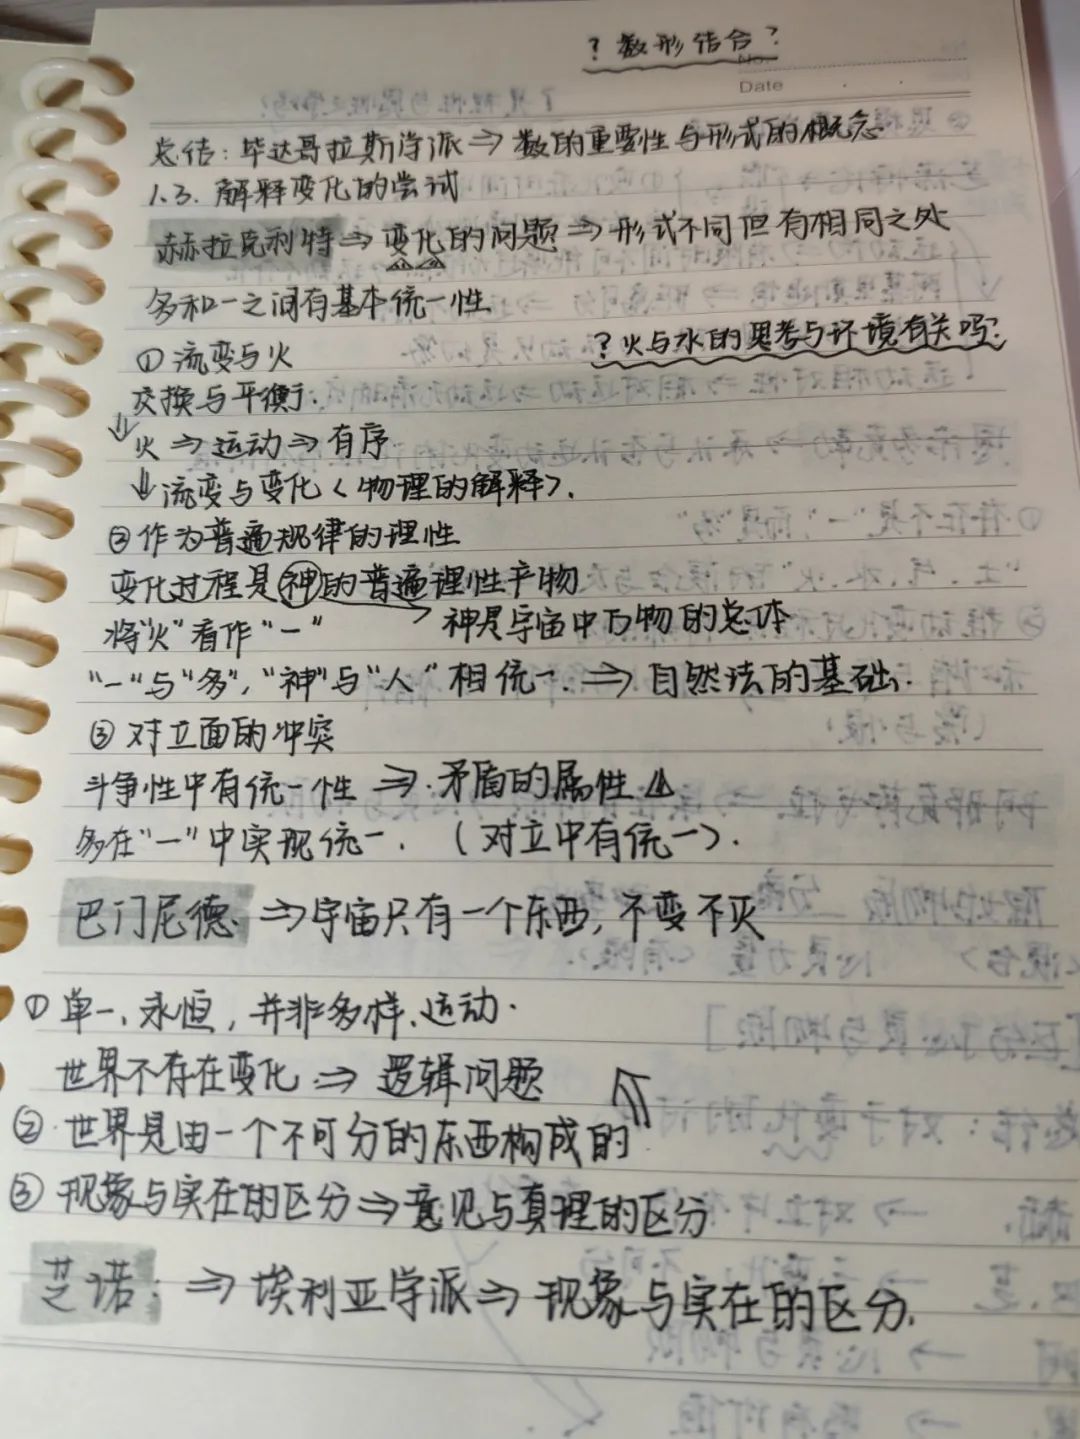 ？数形结合？
No.
Date
总结：毕达哥拉斯学派⇒数的重要性与形式的概念
1.3. 解释变化的尝试
赫拉克利特⇒变化的问题⇒形式不同但有相同之处
多和一之间有基本统一性
①流变与火
？火与水的思考与环境有关吗？
交换与平衡.
⇓火⇒运动⇒有序
⇓流变与变化<物理的解释>.
②作为普遍规律的理性
变化过程是神的普遍理性产物
将"火"看作"一"
神是宇宙中万物的总体
"一"与"多","神"与"人"相统一.⇒自然法的基础.
③对立面的冲突
斗争性中有统一性⇒矛盾的属性⇓
多在"一"中实现统一.（对立中有统一）.
巴门尼德.⇒宇宙只有一个东西,不变不灭
①单一、永恒,并非多样、运动.
世界不存在变化.⇒逻辑问题
②.世界是由一个不可分的东西构成的
③现象与实在的区分⇒意见与真理的区分
芝诺：⇒埃利亚学派⇒现象与实在的区分.